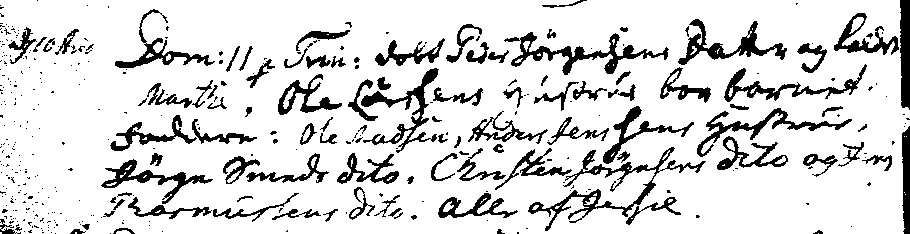 Dom: 11 p Trin: dobt Peder Jörgensens Datter og kaldet
Marthe. Ole Larsens Hustrue bar barnet.
Faddere: Ole Madsen, Anders Jenssens Hustrue,
Jörgen Smeds dito. Christen Jörgensens dito og
Rasmussens dito. alle af